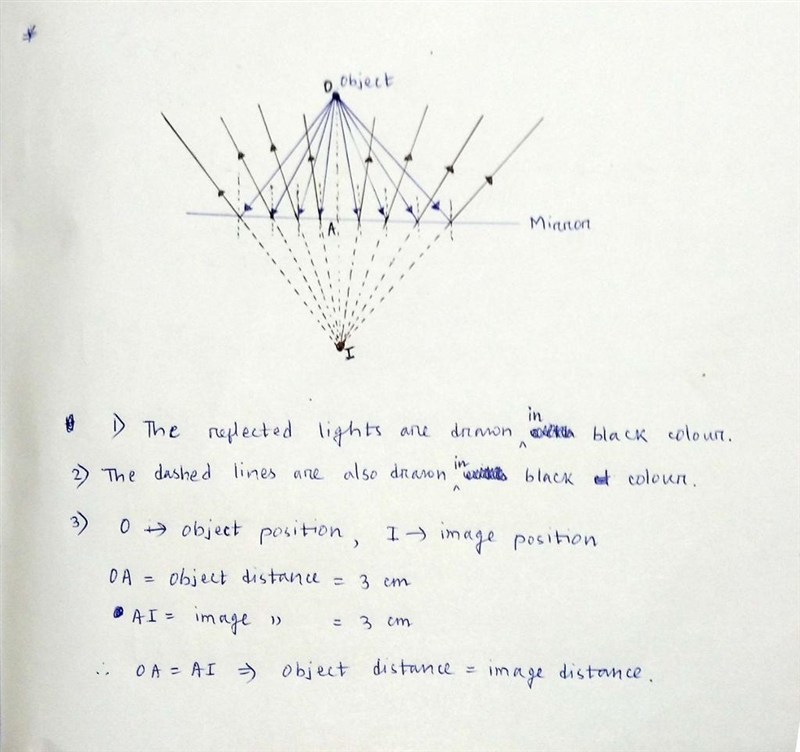 O Object
A
Mirror
I
1) The reflected lights are drawn in black colour.
2) The dashed lines are also drawn in black colour.
3) O → object position, I → image position
OA = object distance = 3 cm
AI = image " = 3 cm
∴ OA = AI ⇒ object distance = image distance.